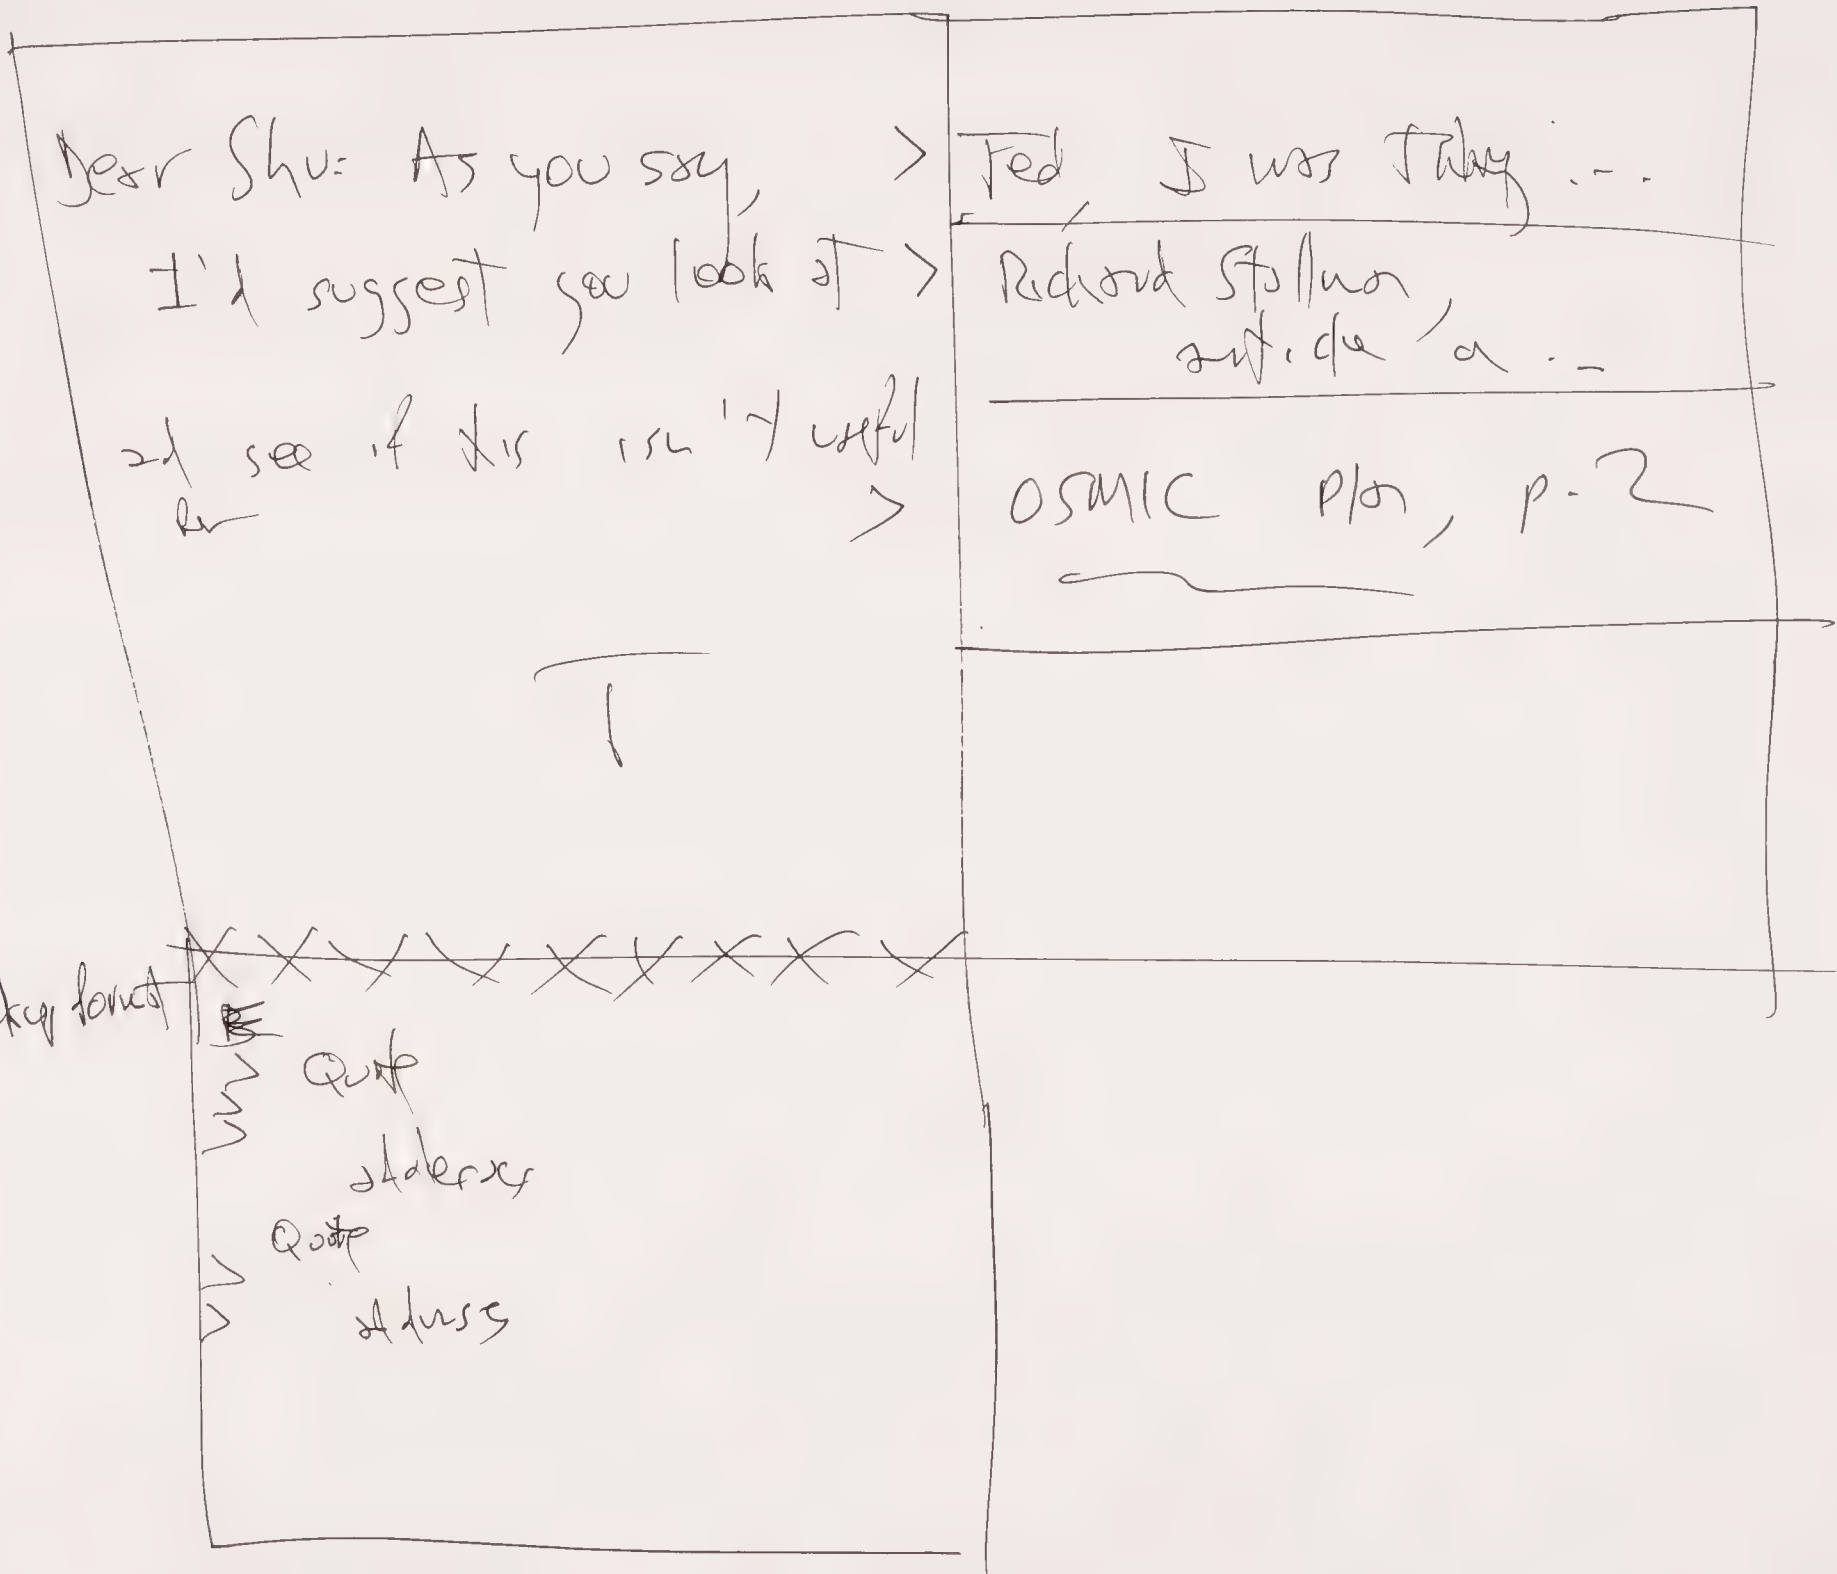 Dear Shu: As you say, >
I'd suggest you look at >
and see if this isn't useful
for >
T
Ted, I was thinking ...
Richard Stallman,
article, a ...
OSMIC plan, p. 2
format
Quote
address
Quote
address